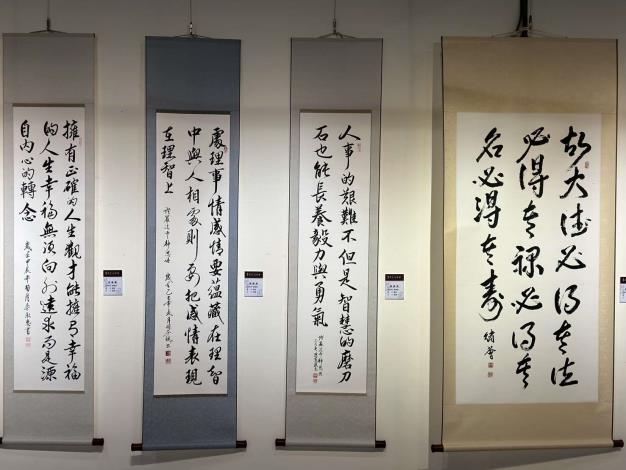 故大德必得其位
必得其祿必得其
名必得其壽
人事的艱難不但是智慧的磨刀
石也能長養毅力與勇氣
處理事情感情要蘊藏在理智
中與人相處則要把感情表現
在理智上
擁有正確的人生觀才能擁有幸福
的人生幸福無須向外遠求而是源
自內心的轉念